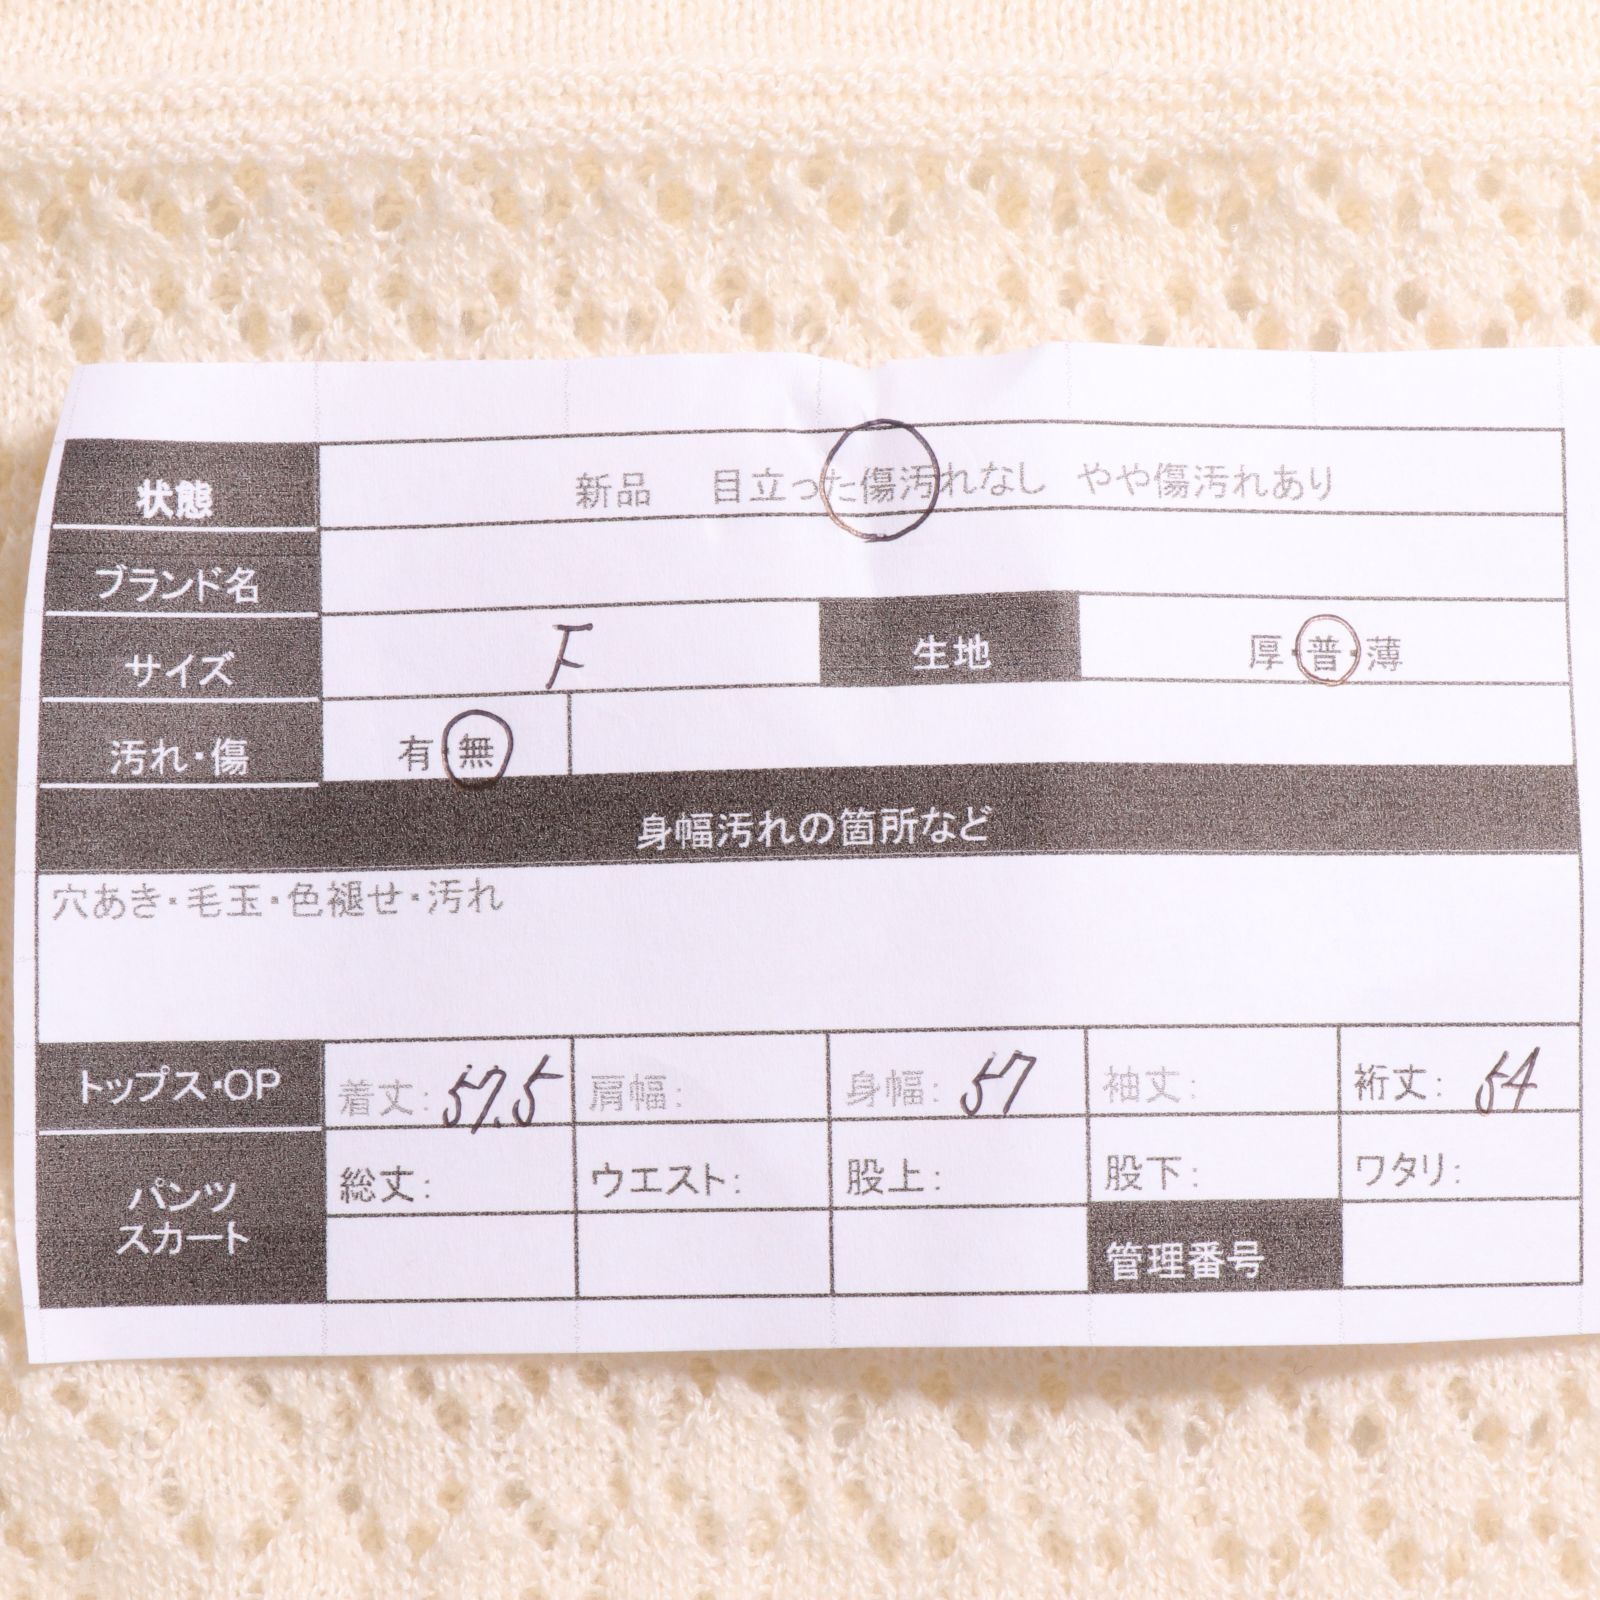 状態 新品 目立った傷汚れなし やや傷汚れあり
ブランド名
サイズ F 生地 厚・普・薄
汚れ・傷 有・無
身幅汚れの箇所など
穴あき・毛玉・色褪せ・汚れ
トップス・OP 着丈: 57.5 肩幅: 身幅: 57 袖丈: 裄丈: 54
パンツ 総丈: ウエスト: 股上: 股下: ワタリ:
スカート 管理番号